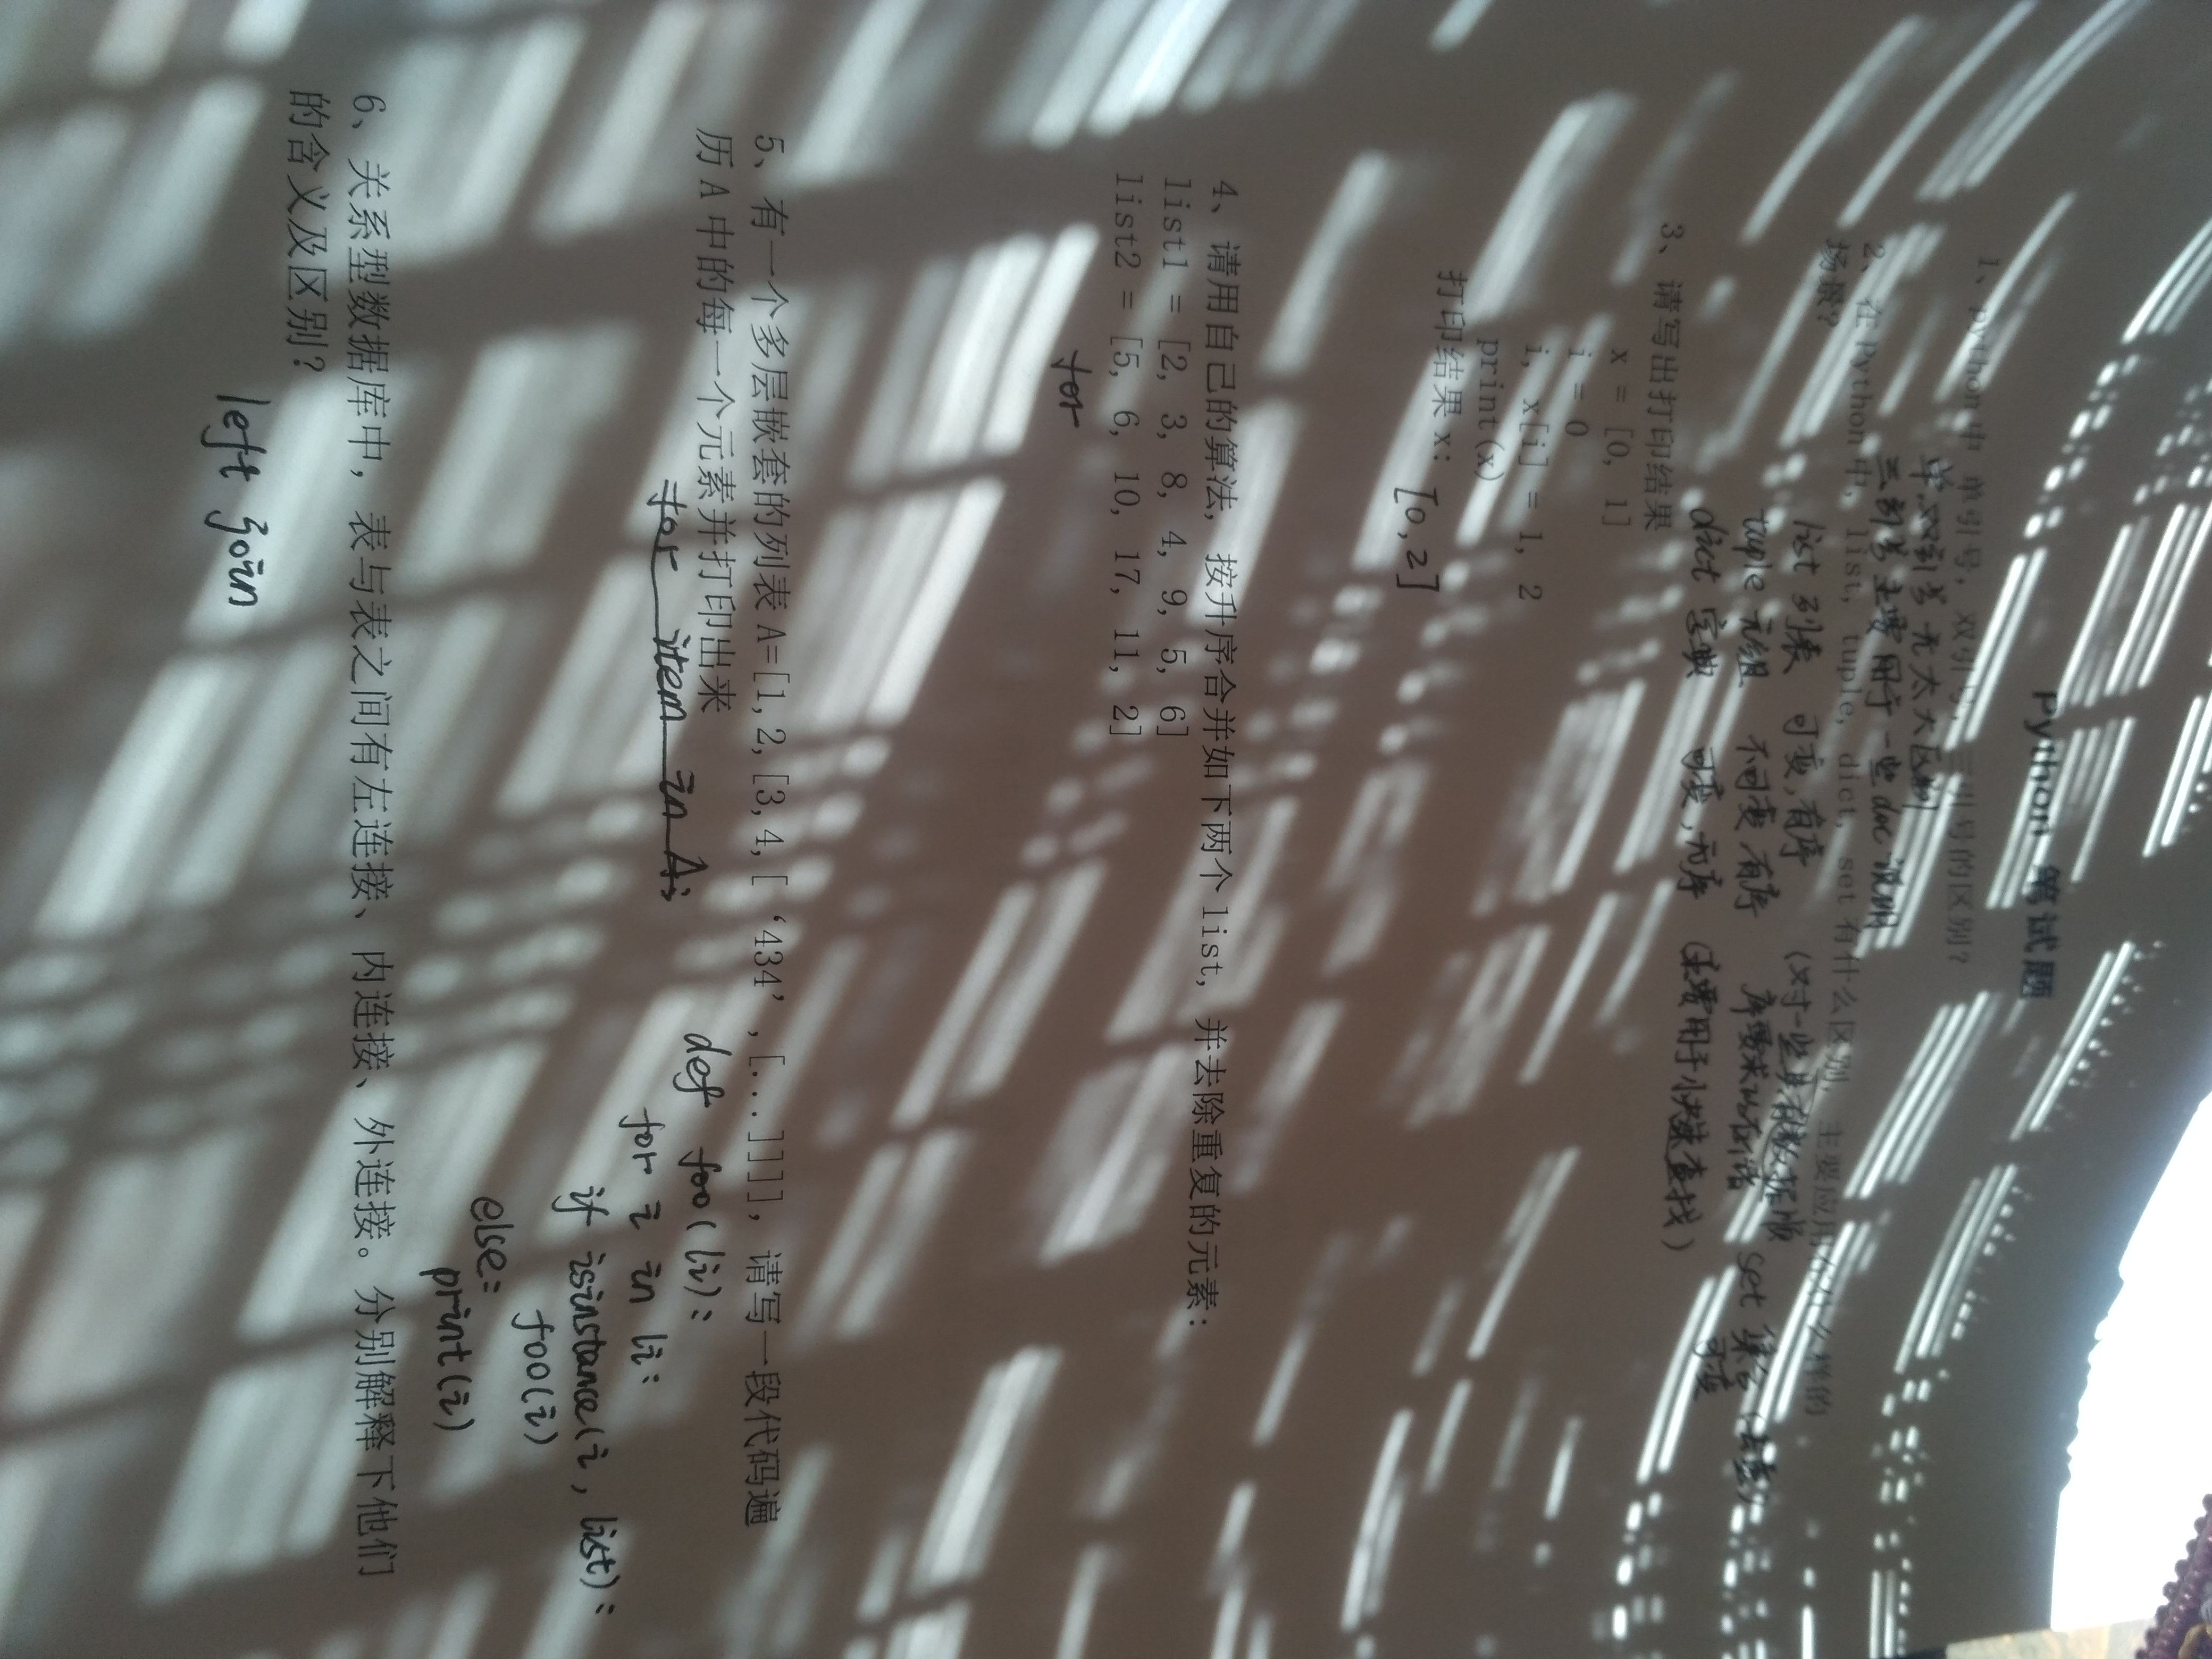 python 笔试题
1、python中 单引号，双引号，三引号的区别?
单双引号无太大区别
三引号主要用于一些doc说明
2、在Python中，list, tuple, dict, set 有什么区别，主要应用在什么样的
场景?
list 列表 可变,有序 (对一些具有数据顺
tuple 元组 不可变,有序 序要求的存储 set 集合 (去重)
dict 字典 可变,无序 (主要用于快速查找) 可变
3、请写出打印结果
x = [0, 1]
i = 0
i, x[i] = 1, 2
print(x)
打印结果 x: [0,2]
4、请用自己的算法，按升序合并如下两个 list, 并去除重复的元素:
list1 = [2, 3, 8, 4, 9, 5, 6]
list2 = [5, 6, 10, 17, 11, 2]
for
5、有一个多层嵌套的列表 A=[1,2,[3,4,[‘434’,[...]]]]，请写一段代码遍
历 A 中的每一个元素并打印出来
for item in A:
def foo(li):
for i in li:
if isinstance(i, list):
foo(i)
else:
print(i)
6、关系型数据库中，表与表之间有左连接、内连接、外连接。分别解释下他们
的含义及区别?
left join